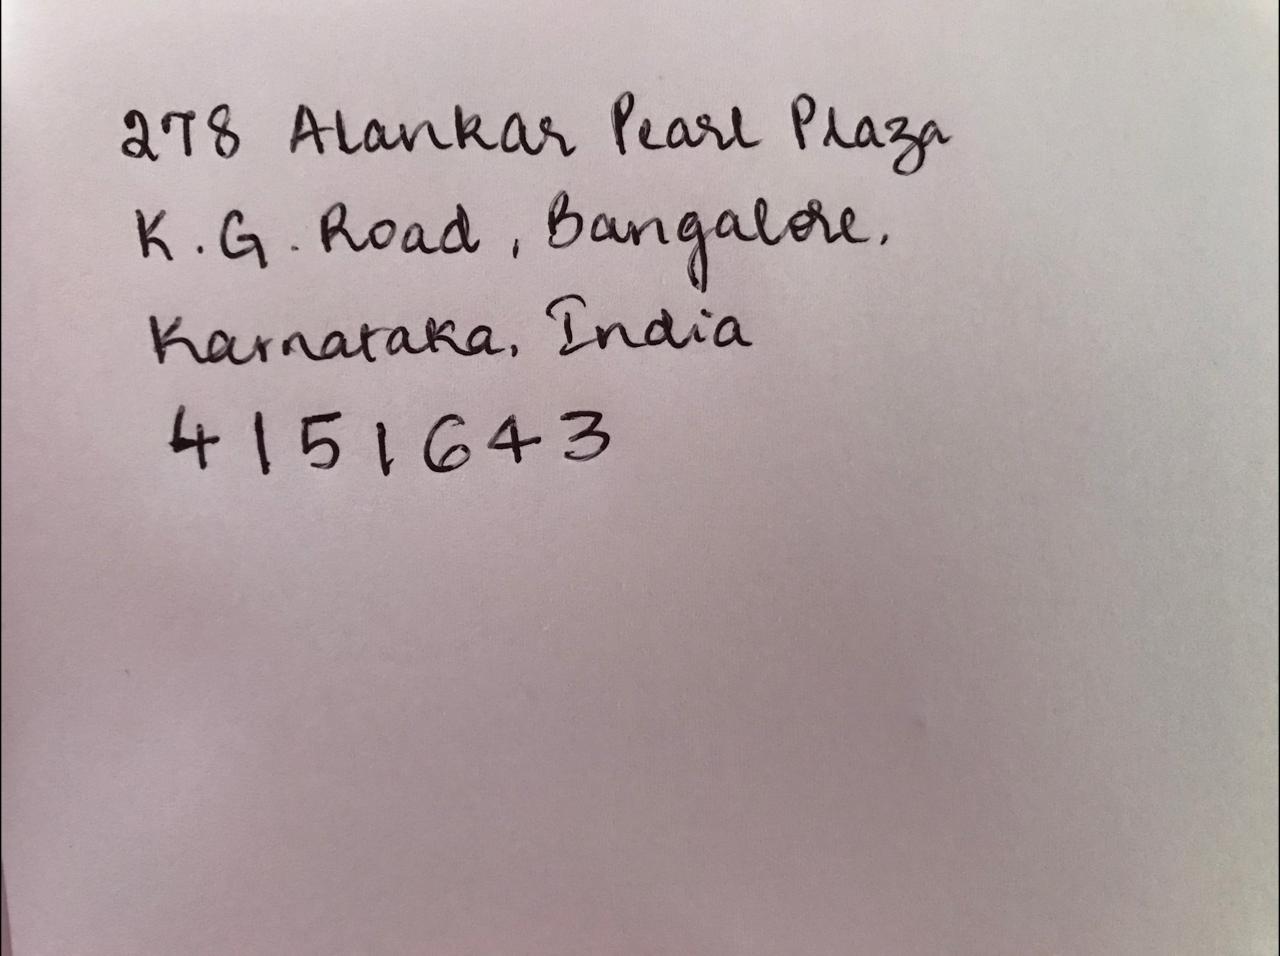 278 Alankar Pearl Plaza
K.G. Road, Bangalore.
Karnataka, India
4151643